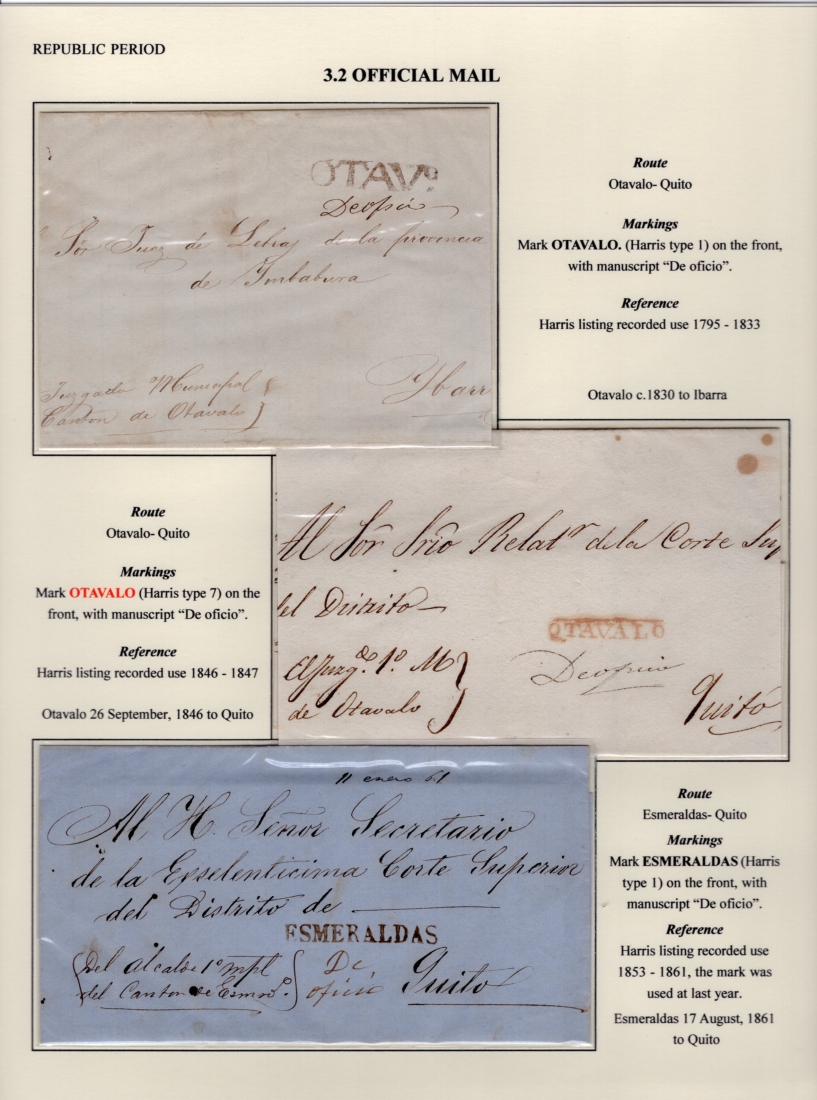 REPUBLIC PERIOD
3.2 OFFICIAL MAIL
OTAVº
De oficio
Sôr Juez de Letras de la provincia
de Imbabura
Juzgado Municipal
Canton de Otavalo
Ybarr
Route
Otavalo- Quito
Markings
Mark OTAVALO. (Harris type 1) on the front,
with manuscript “De oficio”.
Reference
Harris listing recorded use 1795 - 1833
Otavalo c.1830 to Ibarra
Route
Otavalo- Quito
Markings
Mark OTAVALO (Harris type 7) on the
front, with manuscript “De oficio”.
Reference
Harris listing recorded use 1846 - 1847
Otavalo 26 September, 1846 to Quito
Al Sôr Srîo Relatr de la Corte Sup
del Distrito
OTAVALO
El Juzgdo. 1º. M
de Otavalo
De oficio
Quito
11 enero 61
Al H. Señor Secretario
de la Exselenticima Corte Superior
del Distrito de
ESMERALDAS
Del alcalde 1º mpl
del Canton de Esmds.
De
oficio
Quito
Route
Esmeraldas- Quito
Markings
Mark ESMERALDAS (Harris
type 1) on the front, with
manuscript “De oficio”.
Reference
Harris listing recorded use
1853 - 1861, the mark was
used at last year.
Esmeraldas 17 August, 1861
to Quito